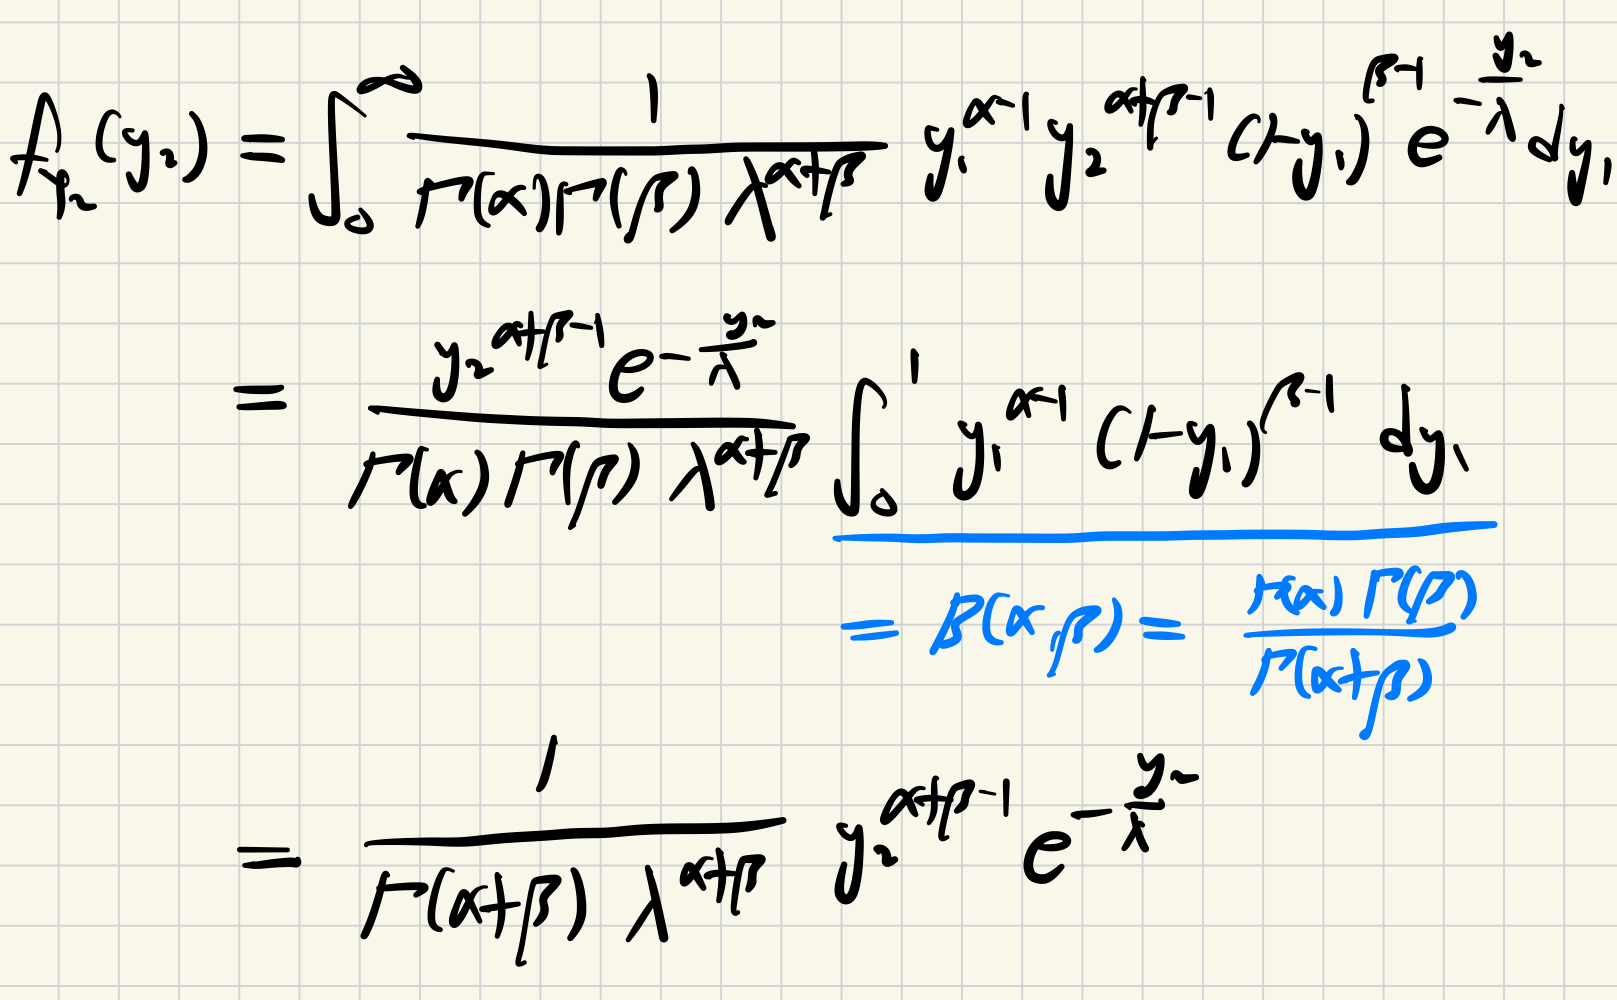 f_{Y_2}(y_2) = ∫_0^∞ \frac{1}{Γ(α)Γ(β) λ^{α+β}} y_1^{α-1} y_2^{α+β-1} (1-y_1)^{β-1} e^{-\frac{y_2}{λ}} dy_1
= \frac{y_2^{α+β-1} e^{-\frac{y_2}{λ}}}{Γ(α) Γ(β) λ^{α+β}} ∫_0^1 y_1^{α-1} (1-y_1)^{β-1} dy_1
= B(α, β) = \frac{Γ(α) Γ(β)}{Γ(α+β)}
= \frac{1}{Γ(α+β) λ^{α+β}} y_2^{α+β-1} e^{-\frac{y_2}{λ}}